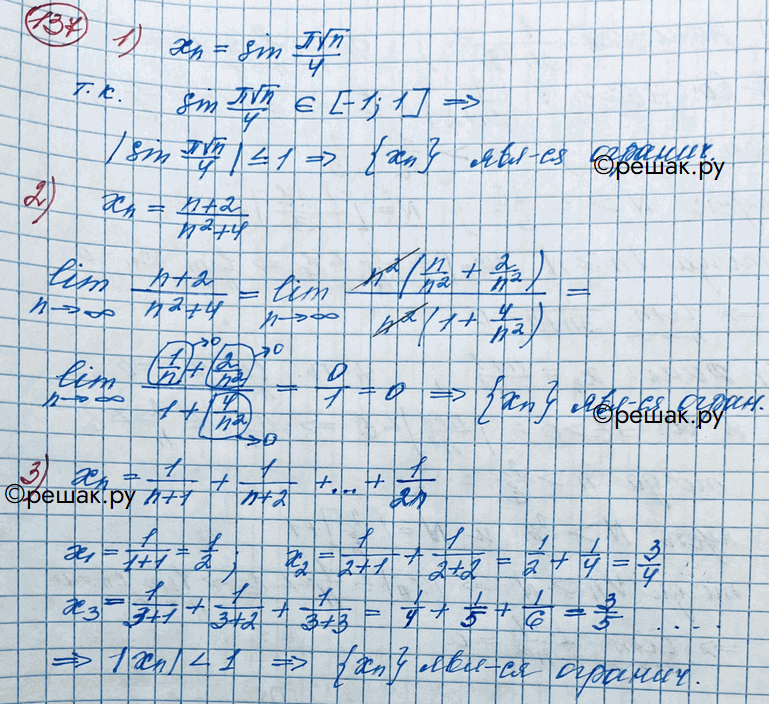 137
1) xₙ = sin π√n/4
т.к. sin π√n/4 ∈ [-1; 1] ⇒
|sin π√n/4| ≤ 1 ⇒ {xₙ} явл-ся огранич.
©решак.ру
2) xₙ = (n+2)/(n²+4)
lim n→∞ (n+2)/(n²+4) = lim n→∞ n²(n/n² + 2/n²)/n²(1 + 4/n²) =
lim n→∞ ((1/n)→0 + (2/n²)→0)/(1 + (4/n²)→0) = 0/1 = 0 ⇒ {xₙ} явл-ся огран.
©решак.ру
3) xₙ = 1/(n+1) + 1/(n+2) + ... + 1/2n
©решак.ру
x₁ = 1/(1+1) = 1/2; x₂ = 1/(2+1) + 1/(2+2) = 1/2 + 1/4 = 3/4 ...
x₃ = 1/(3+1) + 1/(3+2) + 1/(3+3) = 1/4 + 1/5 + 1/6 = 3/5 ....
⇒ |xₙ| < 1 ⇒ {xₙ} явл-ся огранич.